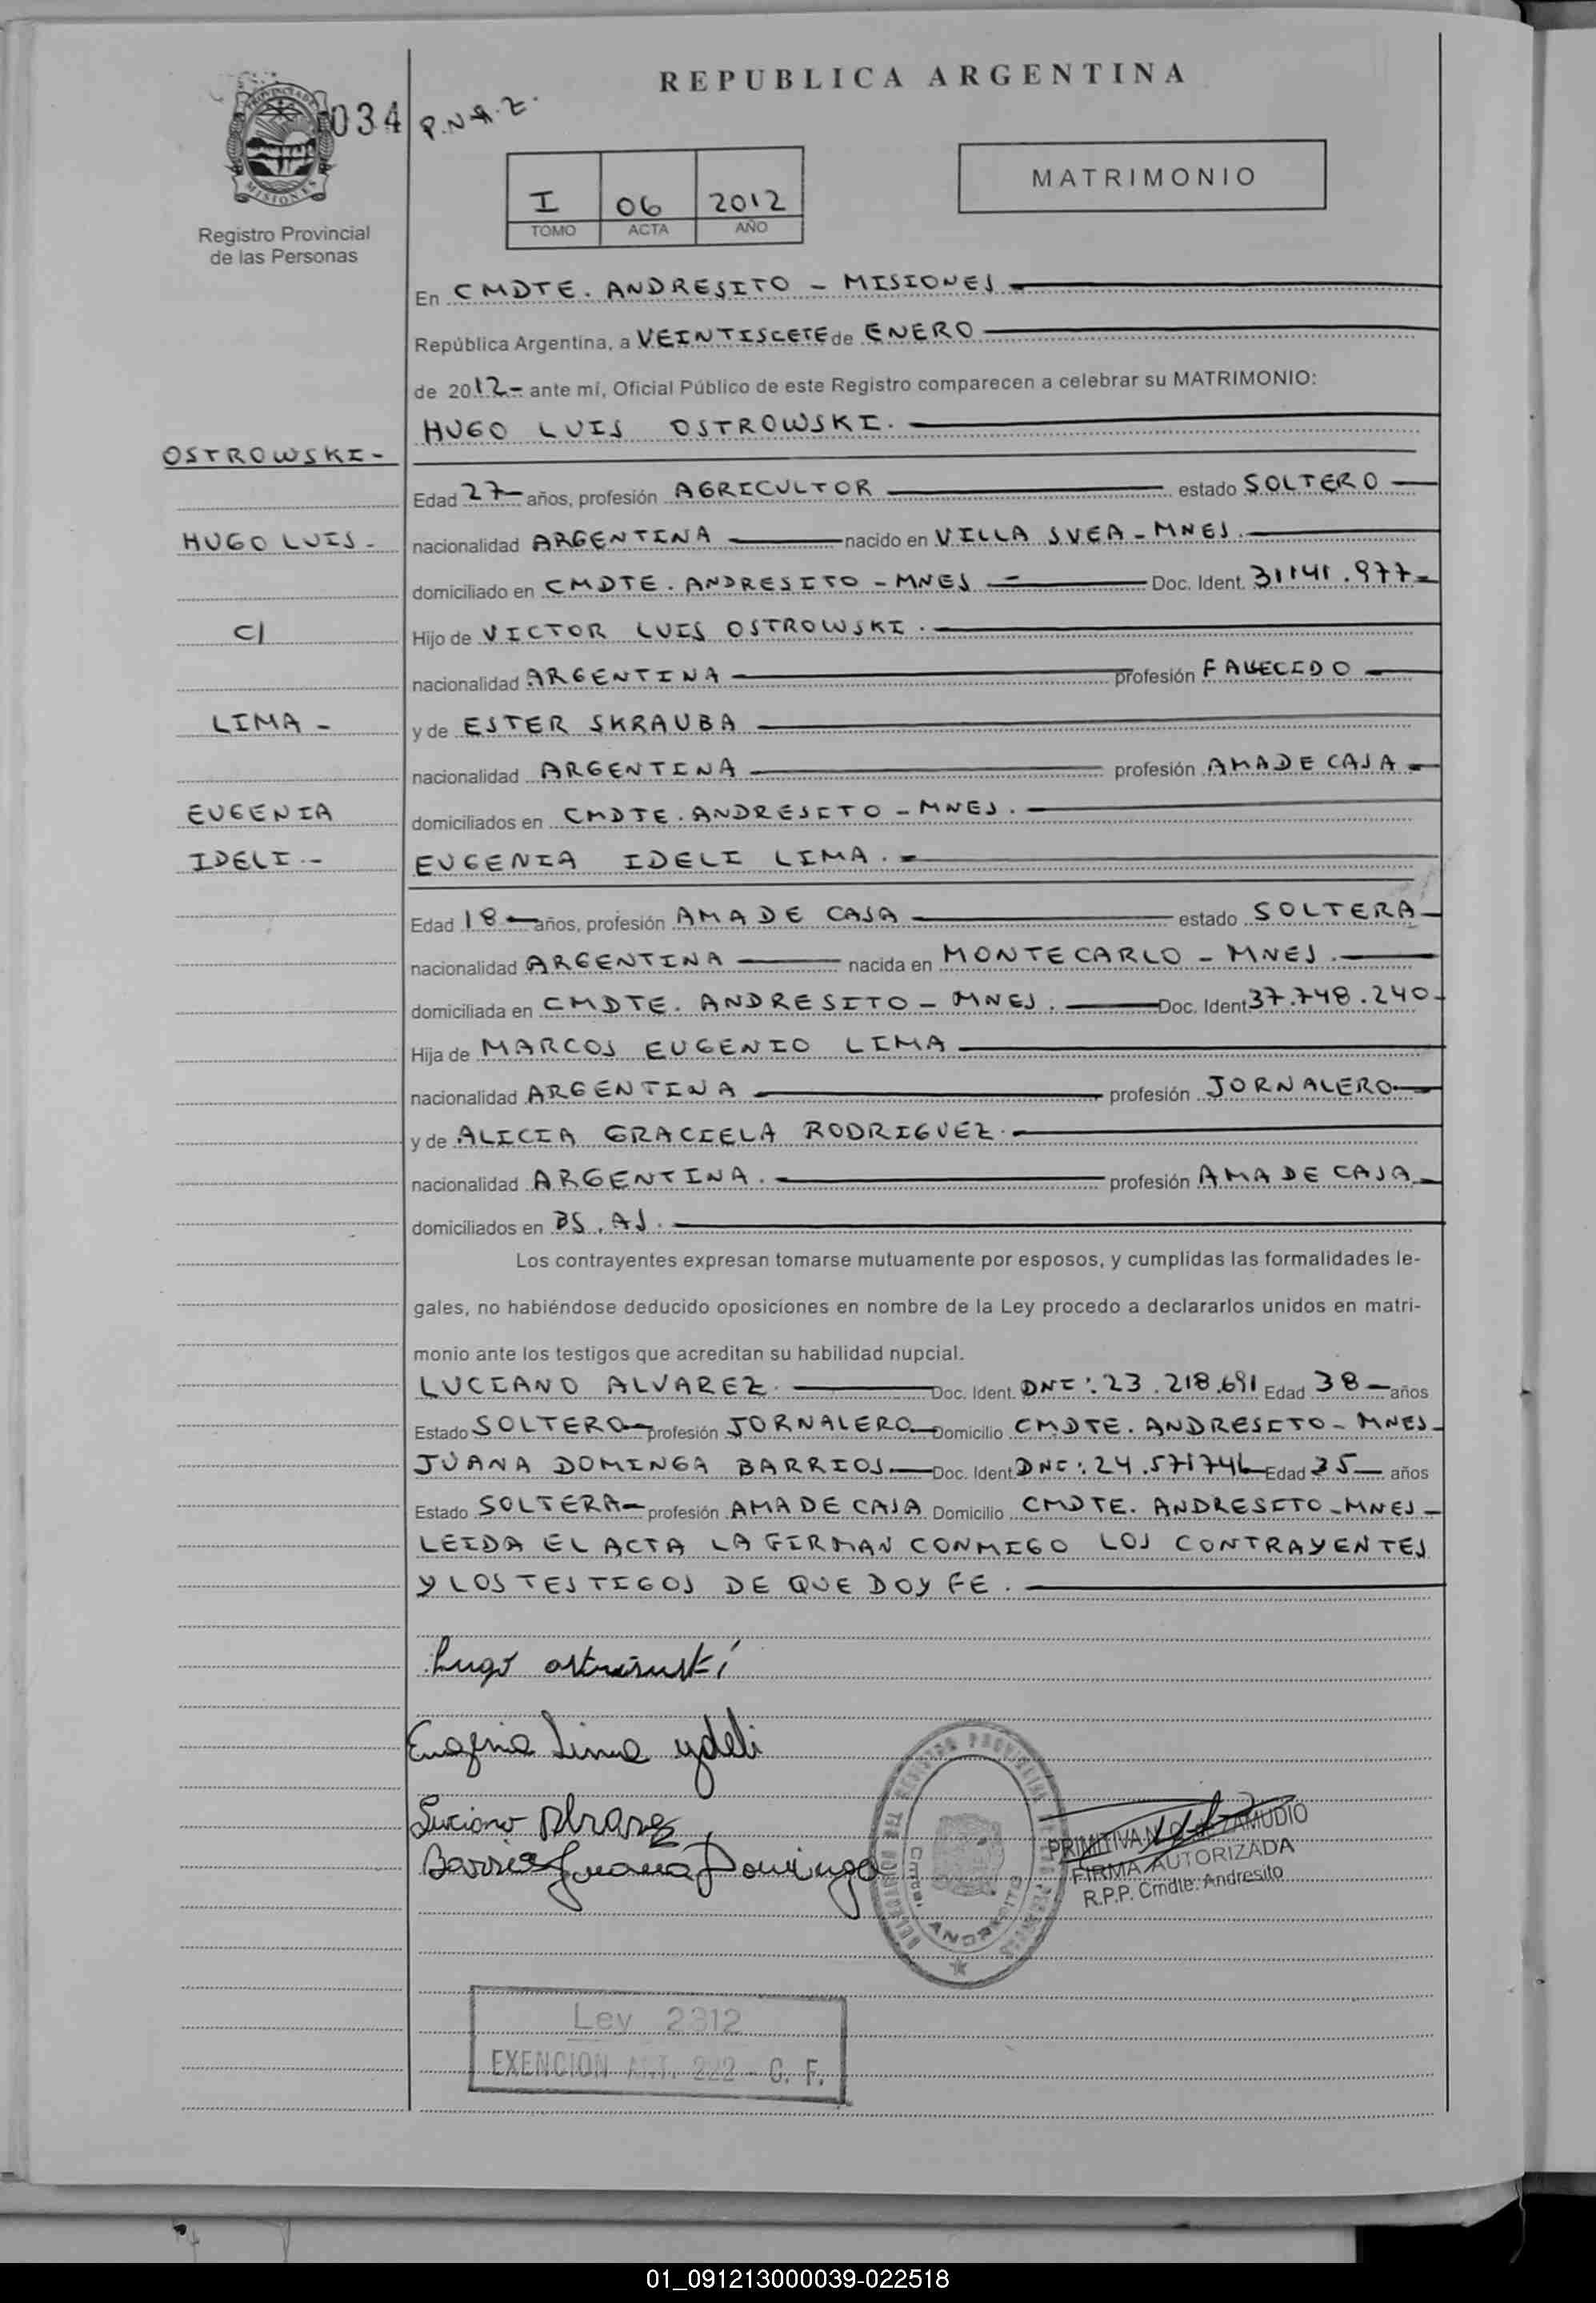 REPUBLICA ARGENTINA
034
P.N.A.Z.
PROVINCIA DE
MISIONES
Registro Provincial
de las Personas
I 06 2012
TOMO ACTA AÑO
MATRIMONIO
En CMDTE. ANDRESITO - MISIONES
República Argentina, a VEINTISCETE de ENERO
de 2012- ante mí, Oficial Público de este Registro comparecen a celebrar su MATRIMONIO:
HUGO LUIS OSTROWSKI.
OSTROWSKI-
Edad 27 años, profesión AGRICULTOR estado SOLTERO
HUGO LUIS-
nacionalidad ARGENTINA nacido en VILLA SVEA - MNES.
domiciliado en CMDTE. ANDRESITO - MNES - Doc. Ident. 31141.977-
C/
Hijo de VICTOR LUIS OSTROWSKI.
nacionalidad ARGENTINA profesión FALLECIDO
LIMA -
y de ESTER SKRAUBA
nacionalidad ARGENTINA profesión AMA DE CASA
EUGENIA
domiciliados en CMDTE. ANDRESITO - MNES.
IDELI.-
EUGENIA IDELI LIMA.
Edad 18 años, profesión AMA DE CASA estado SOLTERA
nacionalidad ARGENTINA nacida en MONTECARLO - MNES.
domiciliada en CMDTE. ANDRESITO - MNES. Doc. Ident. 37.748.240-
Hija de MARCOS EUGENIO LIMA
nacionalidad ARGENTINA profesión JORNALERO
y de ALICIA GRACIELA RODRIGUEZ.
nacionalidad ARGENTINA. profesión AMA DE CASA
domiciliados en BS. AS.
Los contrayentes expresan tomarse mutuamente por esposos, y cumplidas las formalidades le-
gales, no habiéndose deducido oposiciones en nombre de la Ley procedo a declararlos unidos en matri-
monio ante los testigos que acreditan su habilidad nupcial.
LUCIANO ALVAREZ. Doc. Ident. DNI: 23.218.691 Edad 38 años
Estado SOLTERO profesión JORNALERO Domicilio CMDTE. ANDRESITO - MNES-
JUANA DOMINGA BARRIOS Doc. Ident. DNI: 24.571746 Edad 35 años
Estado SOLTERA profesión AMA DE CASA Domicilio CMDTE. ANDRESITO - MNES-
LEIDA EL ACTA LA FIRMAN CONMIGO LOS CONTRAYENTES
Y LOS TESTIGOS DE QUE DOY FE.
Hugo ostrowski
Eugenia Lima ydeli
Luciano Alvarez
Barrios Juana Dominga
ANDRESITO
ZAMUDIO
FIRMA AUTORIZADA
R.P.P. Cmdte. Andresito
Ley 2312
EXENCION ART. 222 - C. F.
01_091213000039-022518